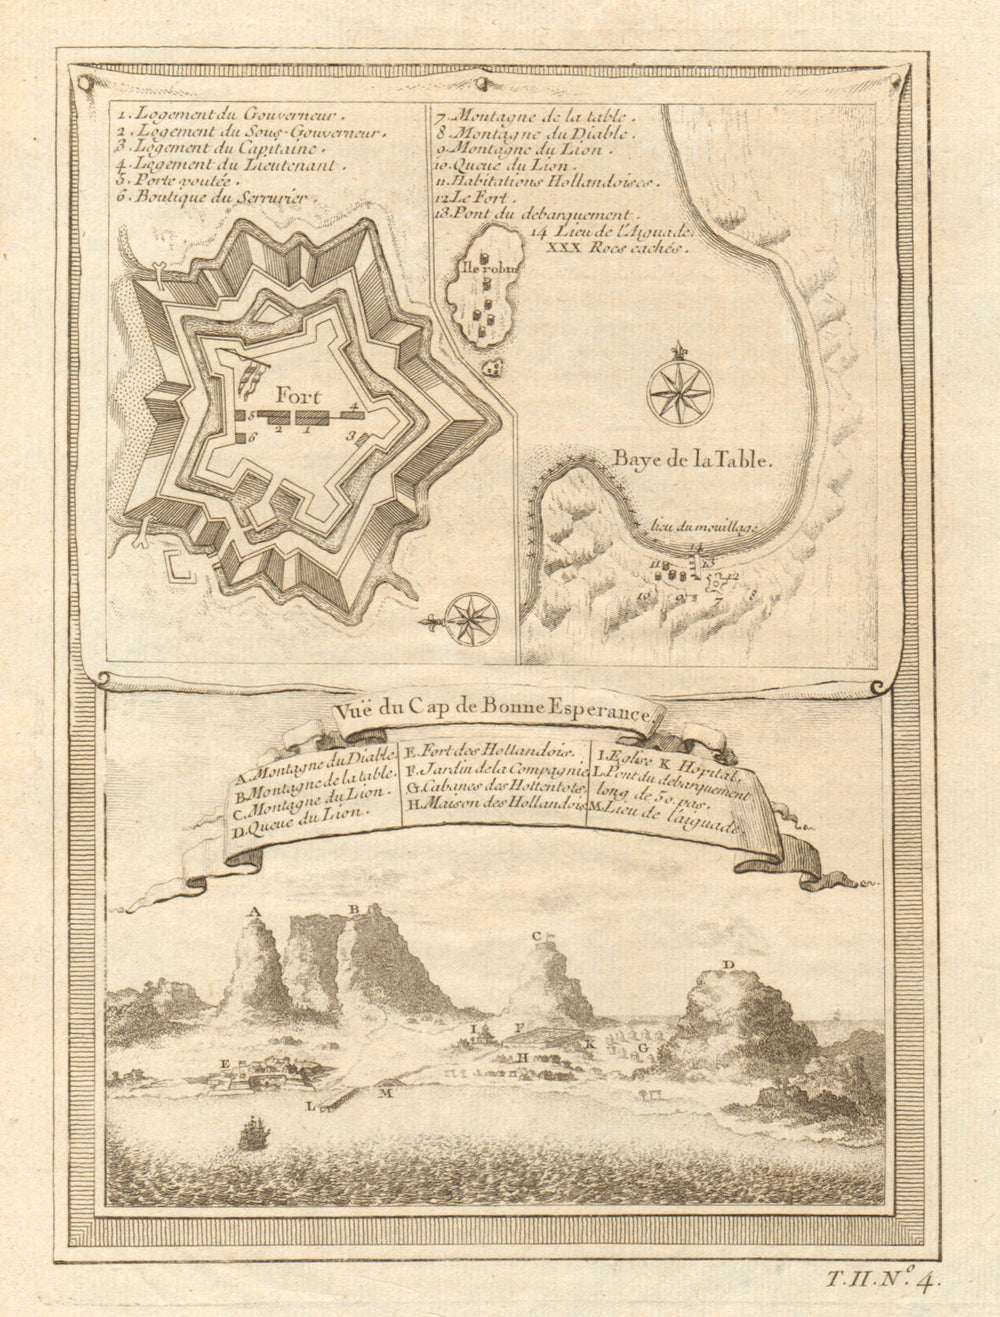 1. Logement du Gouverneur.
2. Logement du Sous-Gouverneur.
3. Logement du Capitaine.
4. Logement du Lieutenant.
5. Porte voutée.
6. Boutique du Serrurier.
7. Montagne de la table.
8. Montagne du Diable.
9. Montagne du Lion.
10. Queue du Lion.
11. Habitations Hollandoises.
12. Le Fort.
13. Pont du debarquement.
14 Lieu de l'Aiguade.
XXX Rocs cachés.
Ile robin
Fort
5
4
2
1
6
3
Baye de la Table.
lieu du mouillage
14
11
13
12
10
9
7
8
Vuë du Cap de Bonne Esperance.
A. Montagne du Diable.
B. Montagne de la table.
C. Montagne du Lion.
D. Queue du Lion.
E. Fort des Hollandois.
F. Jardin de la Compagnie
G. Cabanes des Hottentots.
H. Maison des Hollandois
I. Eglise K Hopital.
L. Pont du debarquement
long de 50. pas.
M. Lieu de l'aiguade.
A
B
C
D
I
F
K
G
E
H
L
M
T. II. N.º 4.